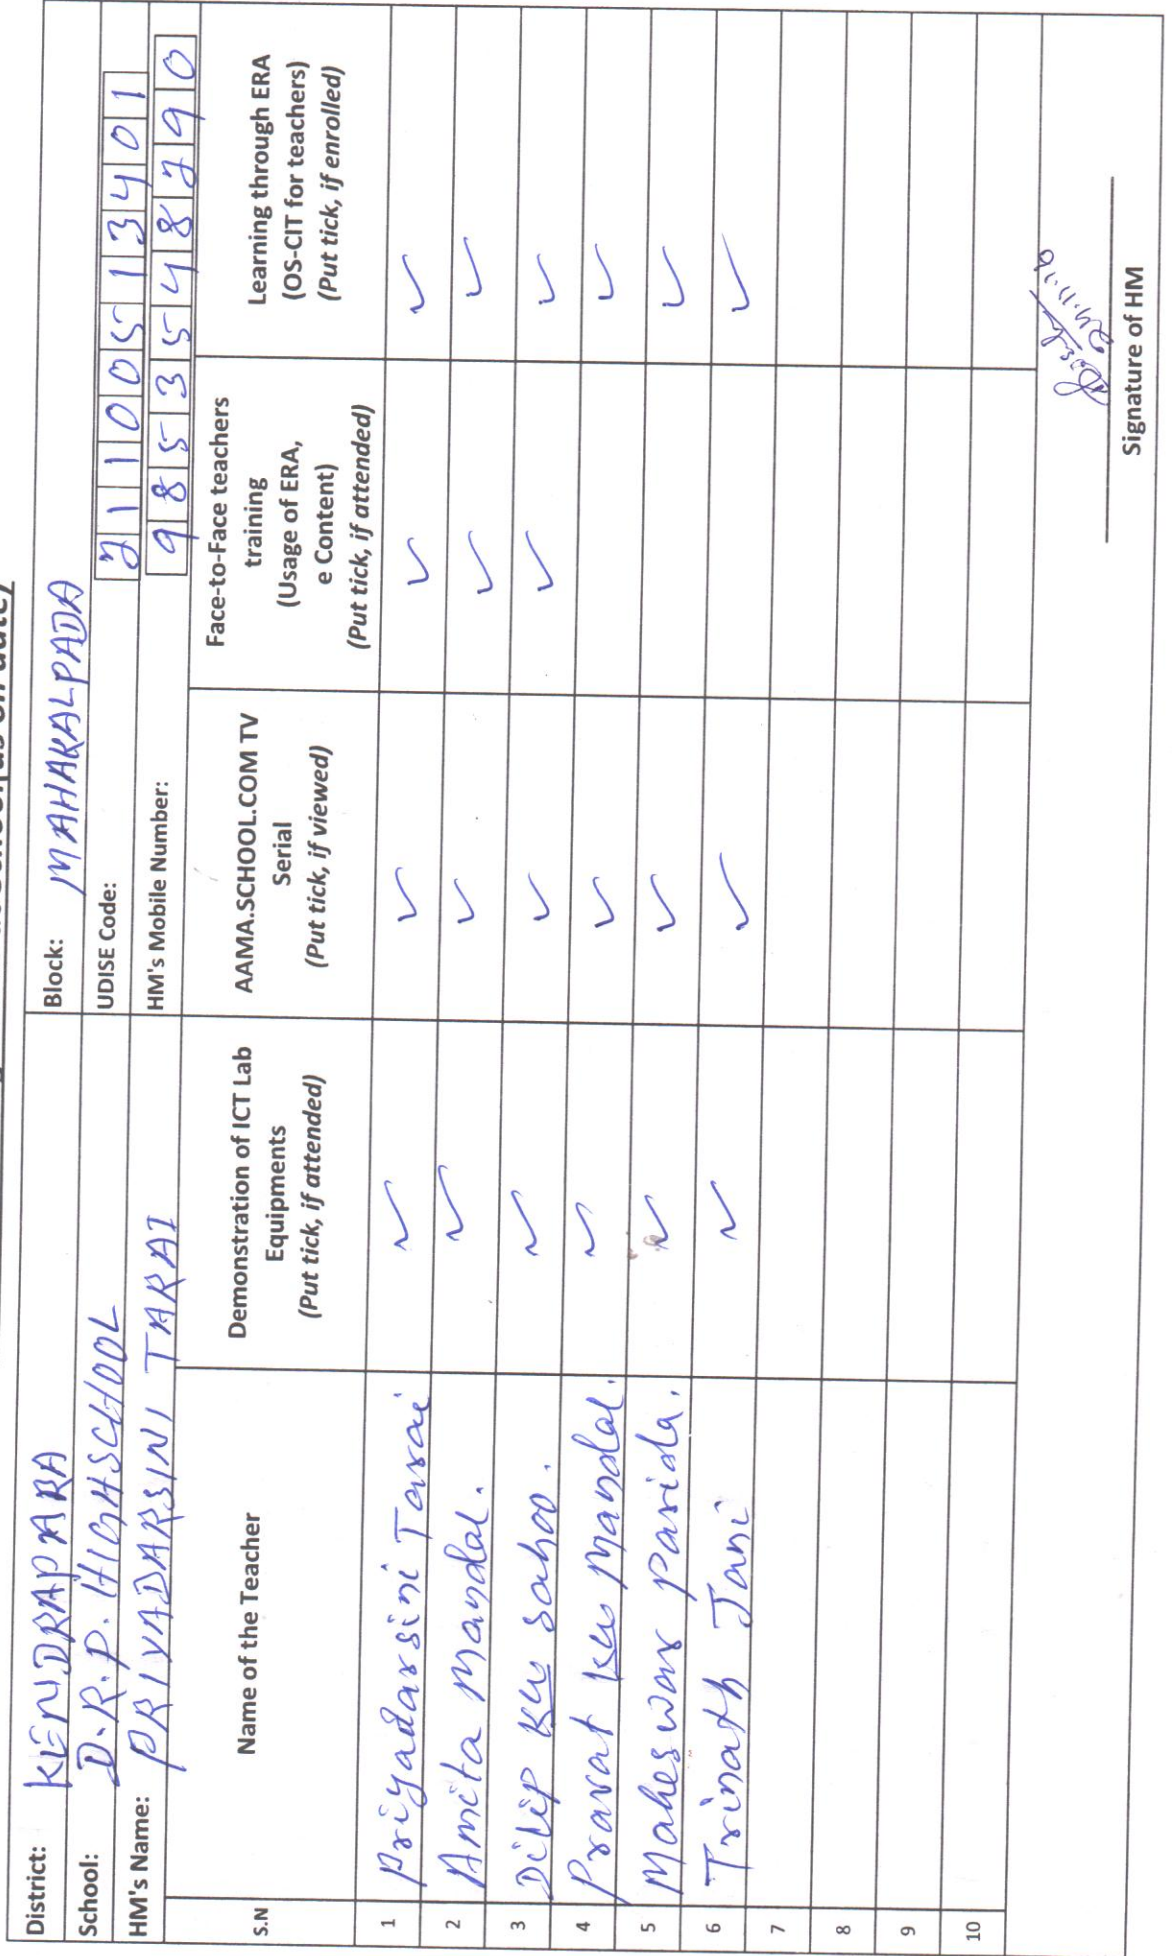 District: KENDRAPARA Block: MAHAKALPADA
School: D.R.P. HIGHSCHOOL UDISE Code: 21100513401
HM's Name: PRIYADARSINI TARAI HM's Mobile Number: 9853548290
S.N Name of the Teacher Demonstration of ICT Lab Equipments (Put tick, if attended) AAMA.SCHOOL.COM TV Serial (Put tick, if viewed) Face-to-Face teachers training (Usage of ERA, e Content) (Put tick, if attended) Learning through ERA (OS-CIT for teachers) (Put tick, if enrolled)
1 Priyadarsini Tarai ✓ ✓ ✓ ✓
2 Amita Mandal. ✓ ✓ ✓ ✓
3 Dilip Ku Sahoo. ✓ ✓ ✓ ✓
4 Pravat Ku Mandal. ✓ ✓ ✓
5 Maheswar Parida. ✓ ✓ ✓
6 Trinath Jani ✓ ✓ ✓
7
8
9
10
Signature of HM